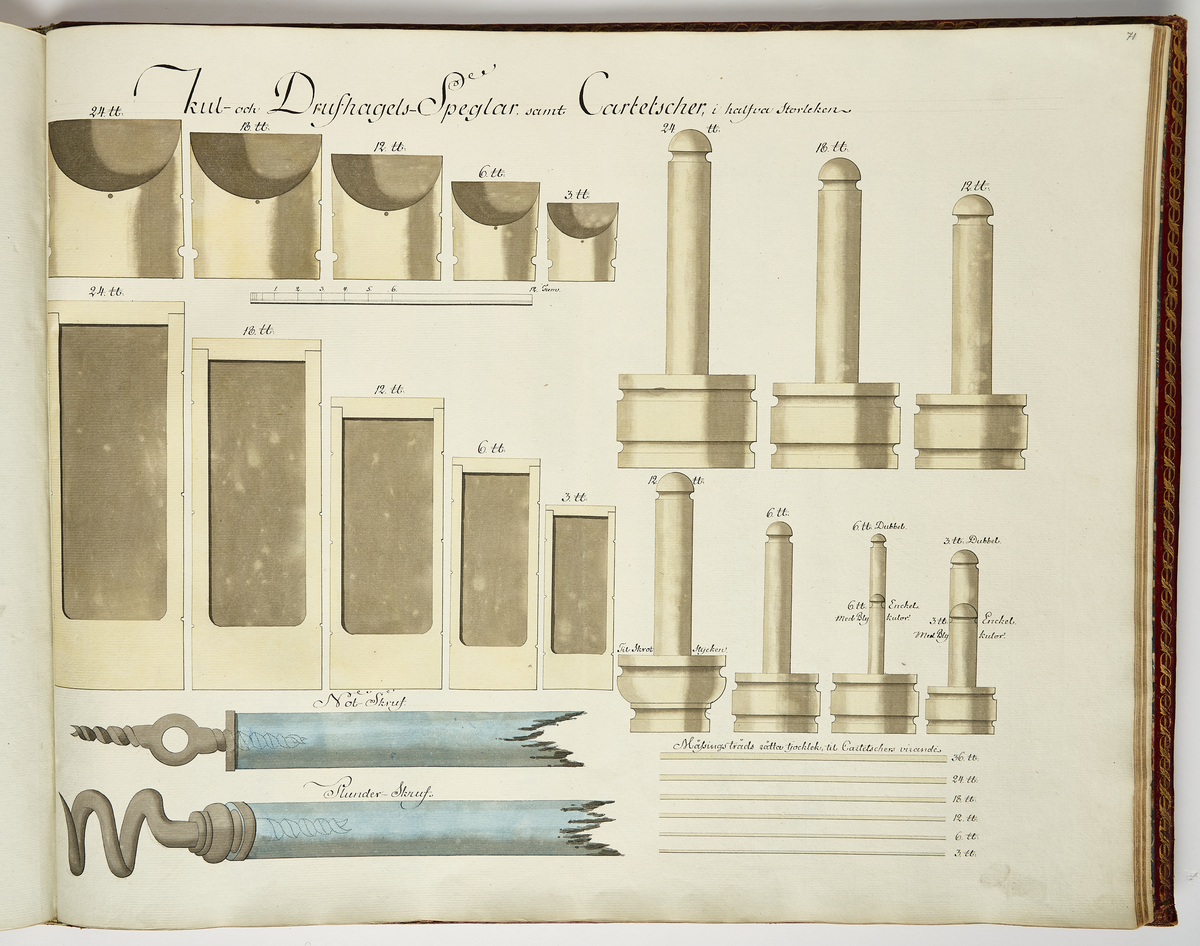 71
Skul- och Drufhagels-Speglar. samt Cartetscher, i halfva Storleken
24. tt.
18. tt.
12. tt.
6. tt.
3. tt.
24 tt.
18. tt.
12 tt.
1 2 3 4 5 6 12. Tum.
24. tt.
18. tt.
12. tt.
6. tt.
3. tt.
12 tt.
Til Skrot Stycken
6. tt.
6. tt. Dubbel.
6 tt. Enckel.
Med Bly kulor.
3. tt. Dubbel.
3. tt. Enckel.
Med Bly kulor.
Not-Skruf.
Plunder-Skruf.
Mäßings tråds rätta tjocklek, til Cartetschers virande
36. tt.
24. tt.
18. tt.
12. tt.
6. tt.
3. tt.